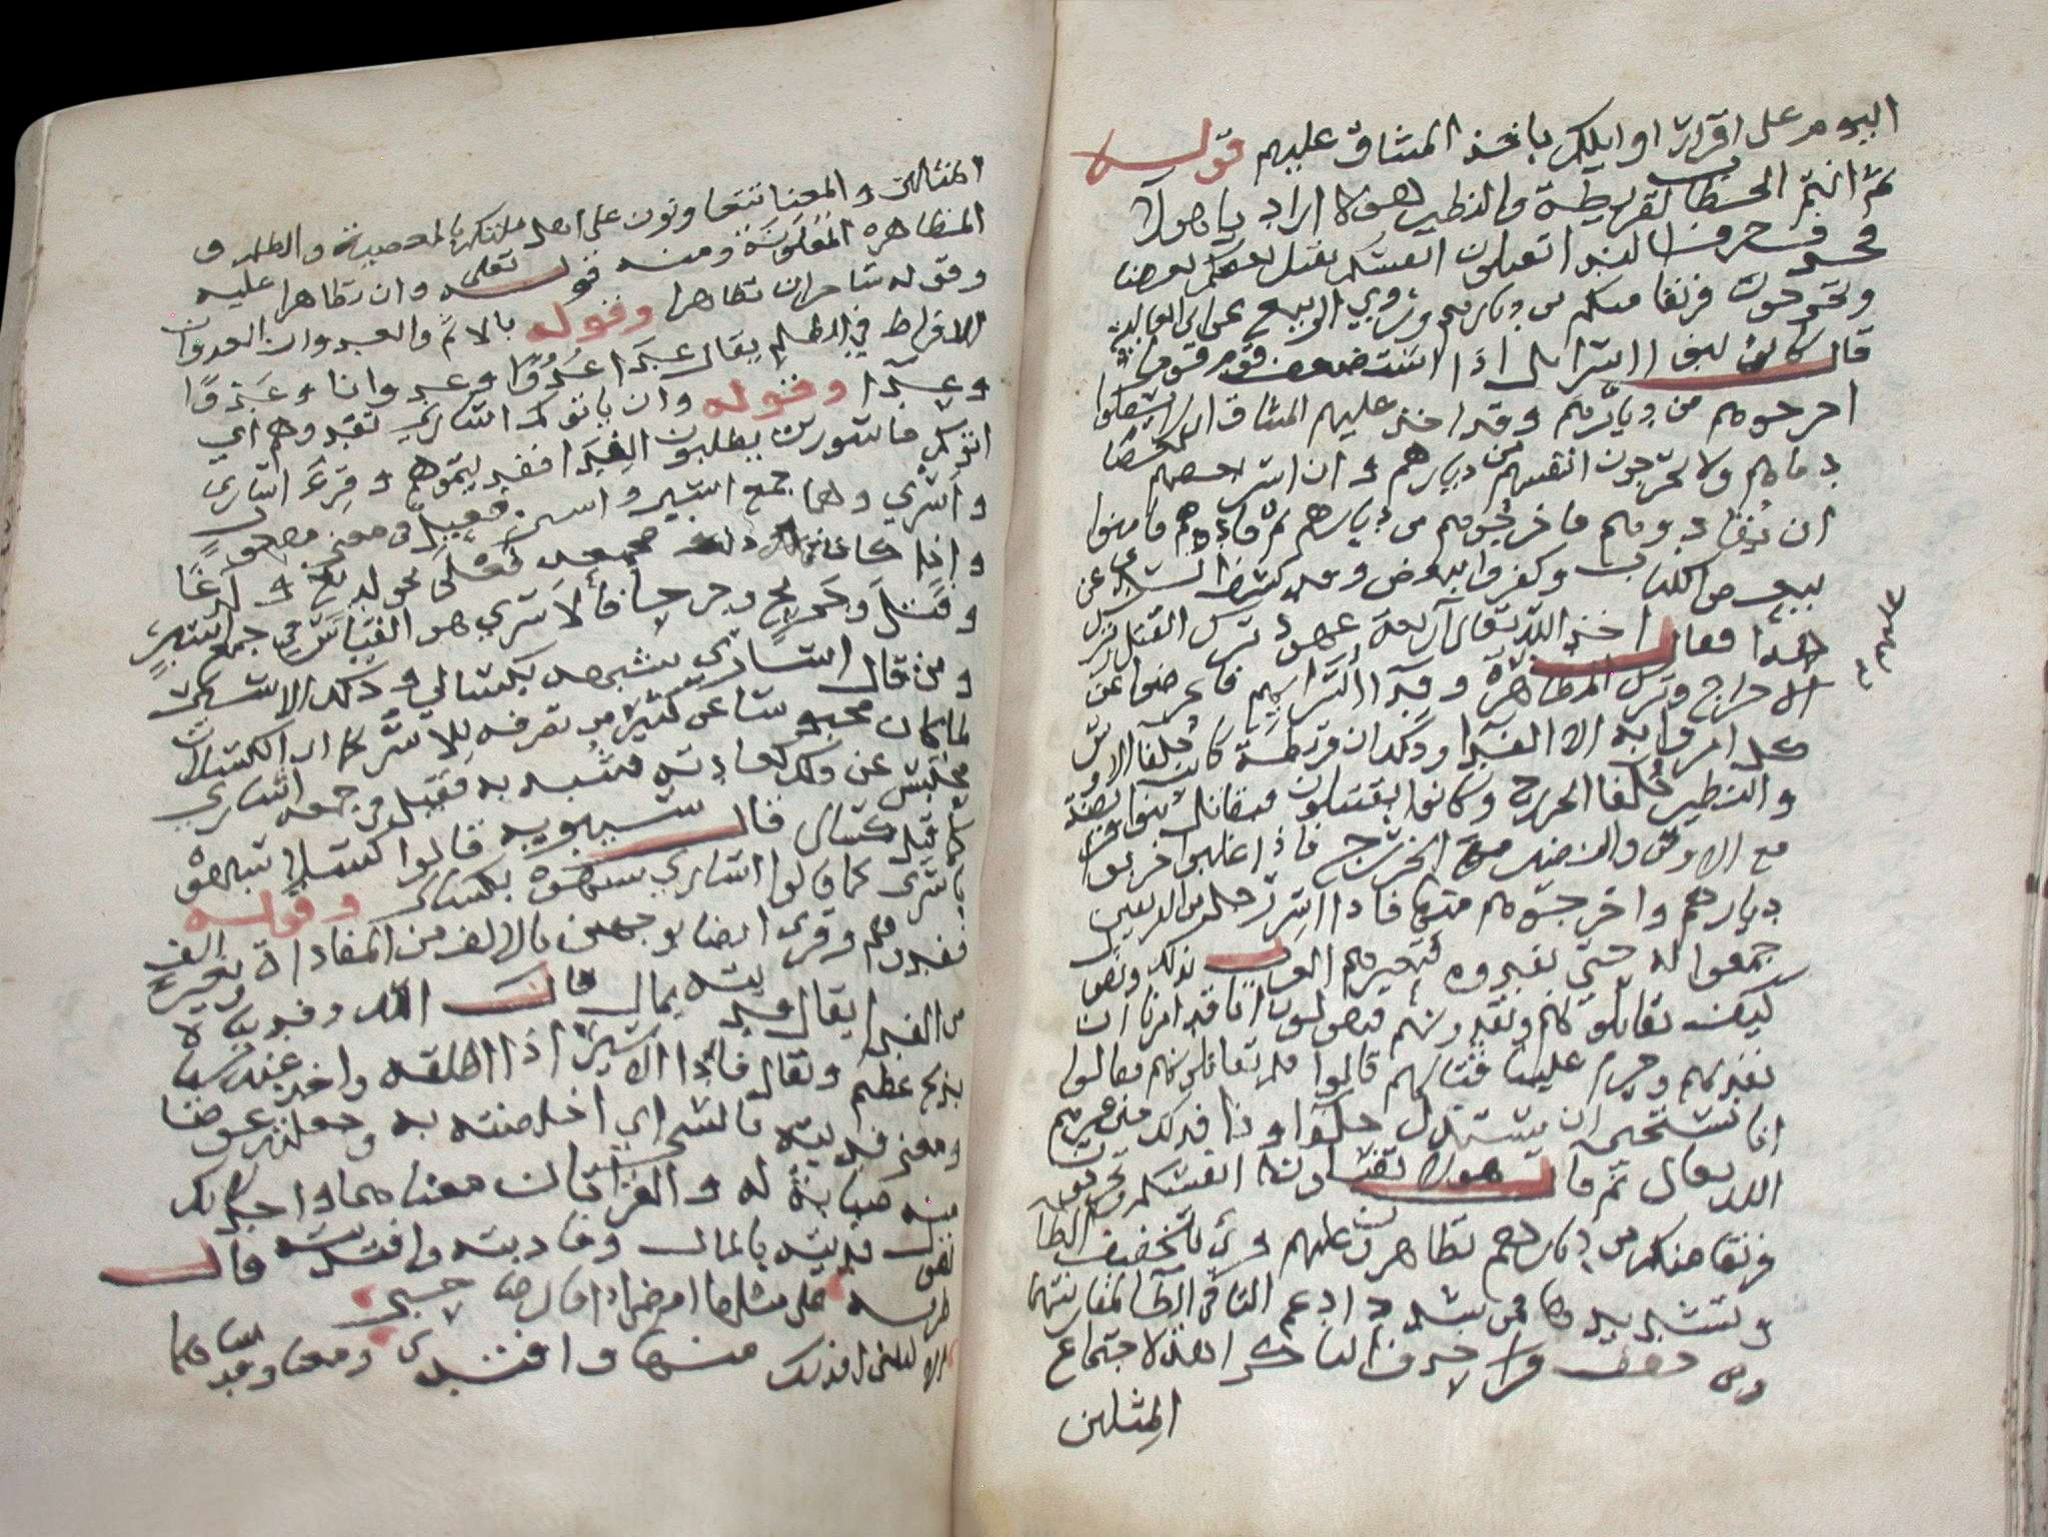 اليوم على اقرار اوايلك باخذ الميثاق عليهم قوله
ثم انتم الخطاب لقريظة والنظير هولا اراد يا هولا
فحذف حرف الندا تقتلون انفسكم بقتل بعضكم بعضا
وتخرجون فريقا منكم من ديارهم وروي الربيع عن ابي العالية
قال كان بنوا اسرايل اذا استضعف قوم قوما
اخرجوهم من ديارهم وقد اخذ عليهم الميثاق ان لا يسفكوا
دماهم ولا يخرجون انفسهم من ديارهم وان اسر بعضهم بعضا
ان يفادوهم فاخرجوهم من ديارهم ثم فادوهم فامنوا
ببعض الكتاب وكفروا ببعض وقد كشف السدي عن
هذا فقال اخذ الله تعالى اربعة عهود ترك القتل وترك
الاخراج وترك المظاهرة وفدا اسراهم فاعرضوا عن
عليهم
كل امروا به الا الفدا وذلك ان قريظة كانت حلفا الاوس
والنظير حلفا الخزرج وكانوا يقتتلون فيقاتل بنوا قريظة
مع الاوس والنضير مع الخزرج فاذا غلبوا خربوا
ديارهم واخرجوهم منها فاذا اسر رجل من الفريقين
جمعوا له حتى يفدوه فتعيرهم العرب بذلك وتقول
كيف تقاتلونهم وتفدونهم فيقولون انا قد امرنا ان
نفديهم وحرم علينا قتالهم قالوا فلم تقاتلونهم فقالوا
انا نستحي ان يستذل حلفاونا فذلك حين عيرهم
الله تعالى ثم قال هولا تقتلون انفسكم وتخرجون
فريقا منكم من ديارهم تظاهرون عليهم قري بتخفيف الظا
وتشديدها فمن شدد ادغم التا في الظا لمقاربتها
ومن خفف فرا لحذف التا كراهة لاجتماع
المثلين
المثالين والمعنا تتعاونون على اهل ملتكم بالمعصية والظلم و
المظاهره المعاونة ومنه قوله تعلى وان تظاهرا عليه
وقوله ساحران تظاهرا وقوله بالاثم والعدوان العدوان
الافراط في الظلم يقال عدا عدوا وعدوانا وعدوا
وعدا وقوله وان ياتوكم اساري تفدوهم اي
اتوكم ماسورين يطلبون الفدا افديتموهم وقرئ اسارى
واسري وهما جمع اسير واسير فعيل في معنى مفعول
واذا كان كذلك جمعه فعلى نحو لديغ ولدغا
وقتيل وجريح وجرحا فالاسري هو القياس في جمع اسير
ومن قال اسارى شبهه بكسالى وذلك الاسير
لما كان محبوسا عن كثير من تصرفه للاسر كما ان الكسلان
محتبس عن ذلك لعادته شبه به فقيل في جمعه اساري
كما قيل كسالى قال سيبويه قالوا كسلى شبهوه
باسرى كما قالوا اساري شبهوه بكسالى وقوله
تفدوهم وقري ايضا بوجهين بالالف من المفاداة وبغير الف
من الفدا يقال فديته بمال قال الله وفديناه
بذبح عظيم ويقال فادا الاسير اذا اطلقه واخذ عنه شيا
ومعنى فديته بالشي اي اخلصته به وجعلته عوضا
منه صيانة له والفرا قال معناهما واحد لك
تقول فديته بالمال وفاديته وافتديته قال
على مثلها امضي اذا قال صاحبي
الا ليتني افديك منها وافتدي ومعنا وفديناه